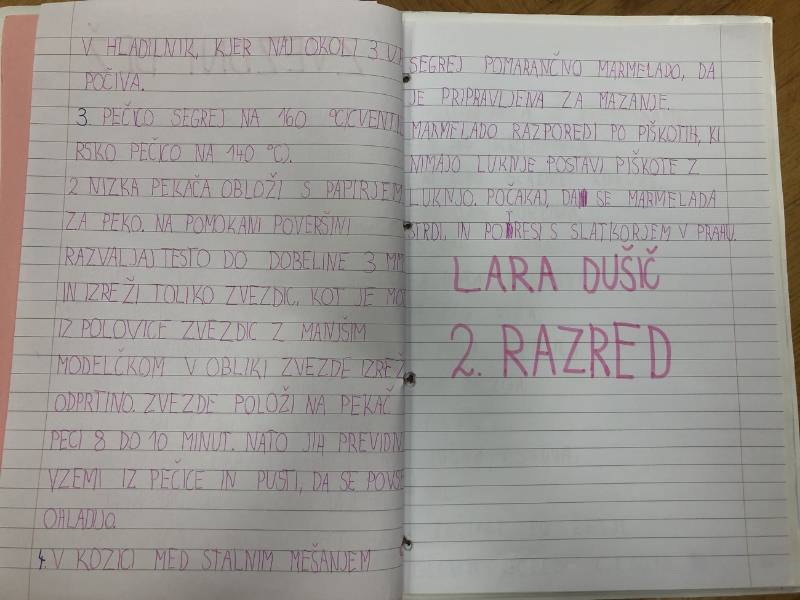 V HLADILNIK, KJER NAJ OKOLI 3
POČIVA.
3. PEČICO SEGREJ NA 160 °C(VENTIL
RSKO PEČICO NA 140 °C).
2 NIZKA PEKAČA OBLOŽI S PAPIRJEM
ZA PEKO. NA POMOKANI POVERŠINI
RAZVALJAJ TESTO DO DOBELINE 3 MM
IN IZREŽI TOLIKO ZVEZDIC, KOT JE MO
IZ POLOVICE ZVEZDIC Z MANJŠIM
MODELČKOM V OBLIKI ZVEZDE IZREŽ
ODPRTINO. ZVEZDE POLOŽI NA PEKAČ
PECI 8 DO 10 MINUT. NATO JIH PREVIDN
VZEMI IZ PEČICE IN PUSTI, DA SE POVSE
OHLADIJO.
4. V KOZICI MED STALNIM MEŠANJEM
SEGREJ POMARANČNO MARMELADO, DA
JE PRIPRAVLJENA ZA MAZANJE.
MARMELADO RAZPOREDI PO PIŠKOTIH, KI
NIMAJO LUKNJE POSTAVI PIŠKOTE Z
LUKNJO. POČAKAJ, DA SE MARMELADA
STRDI, IN POTRESI S SLATKORJEM V PRAHU.
LARA DUŠIČ
2. RAZRED